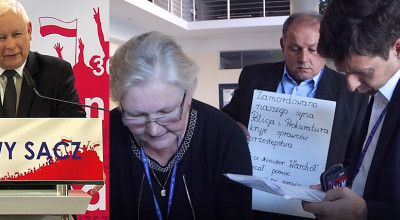 WY SĄCZ
Zamordowano
naszego syna
Policja i Prokuratura
kryje sprawców
przestępstwa
Minister Warchoł
pomoc